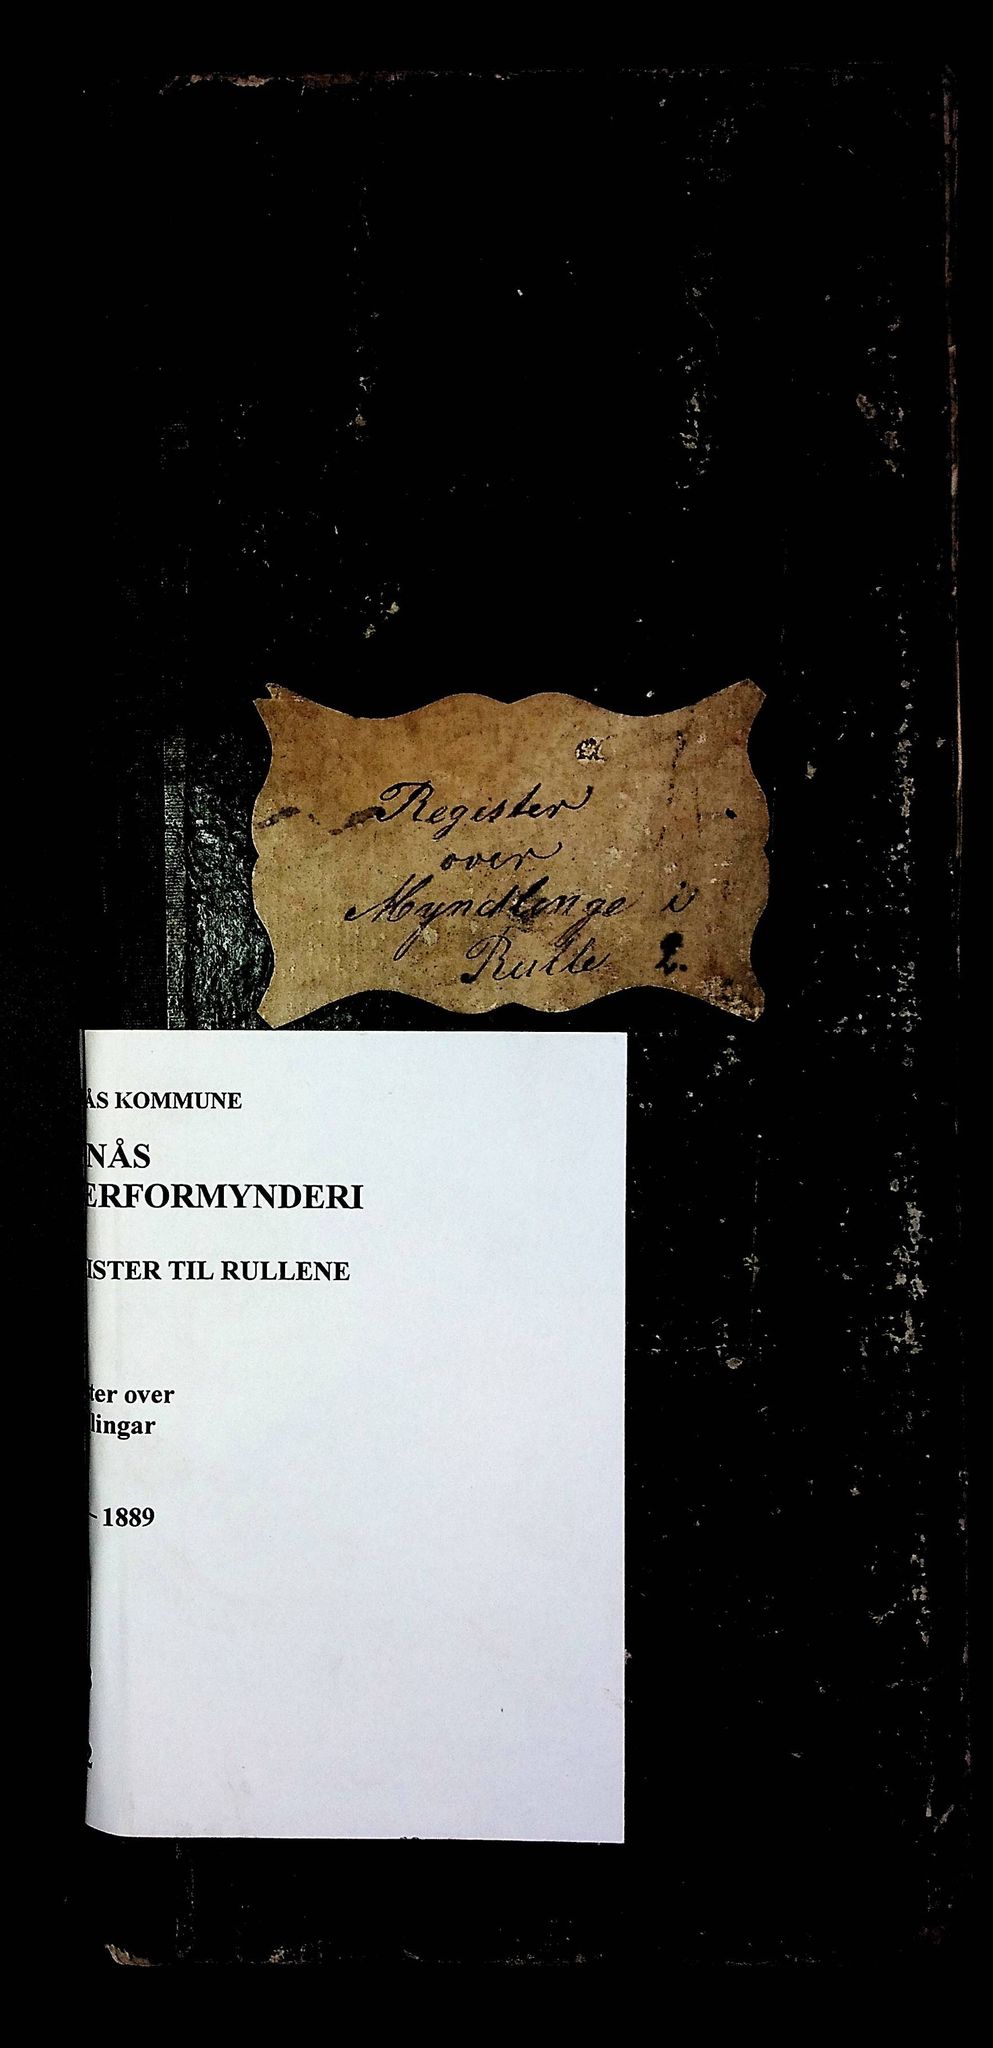 Register
over
Myndlinge i
Rulle 2.
ÅS KOMMUNE
NÅS
ERFORMYNDERI
ISTER TIL RULLENE
ter over
lingar
– 1889
2